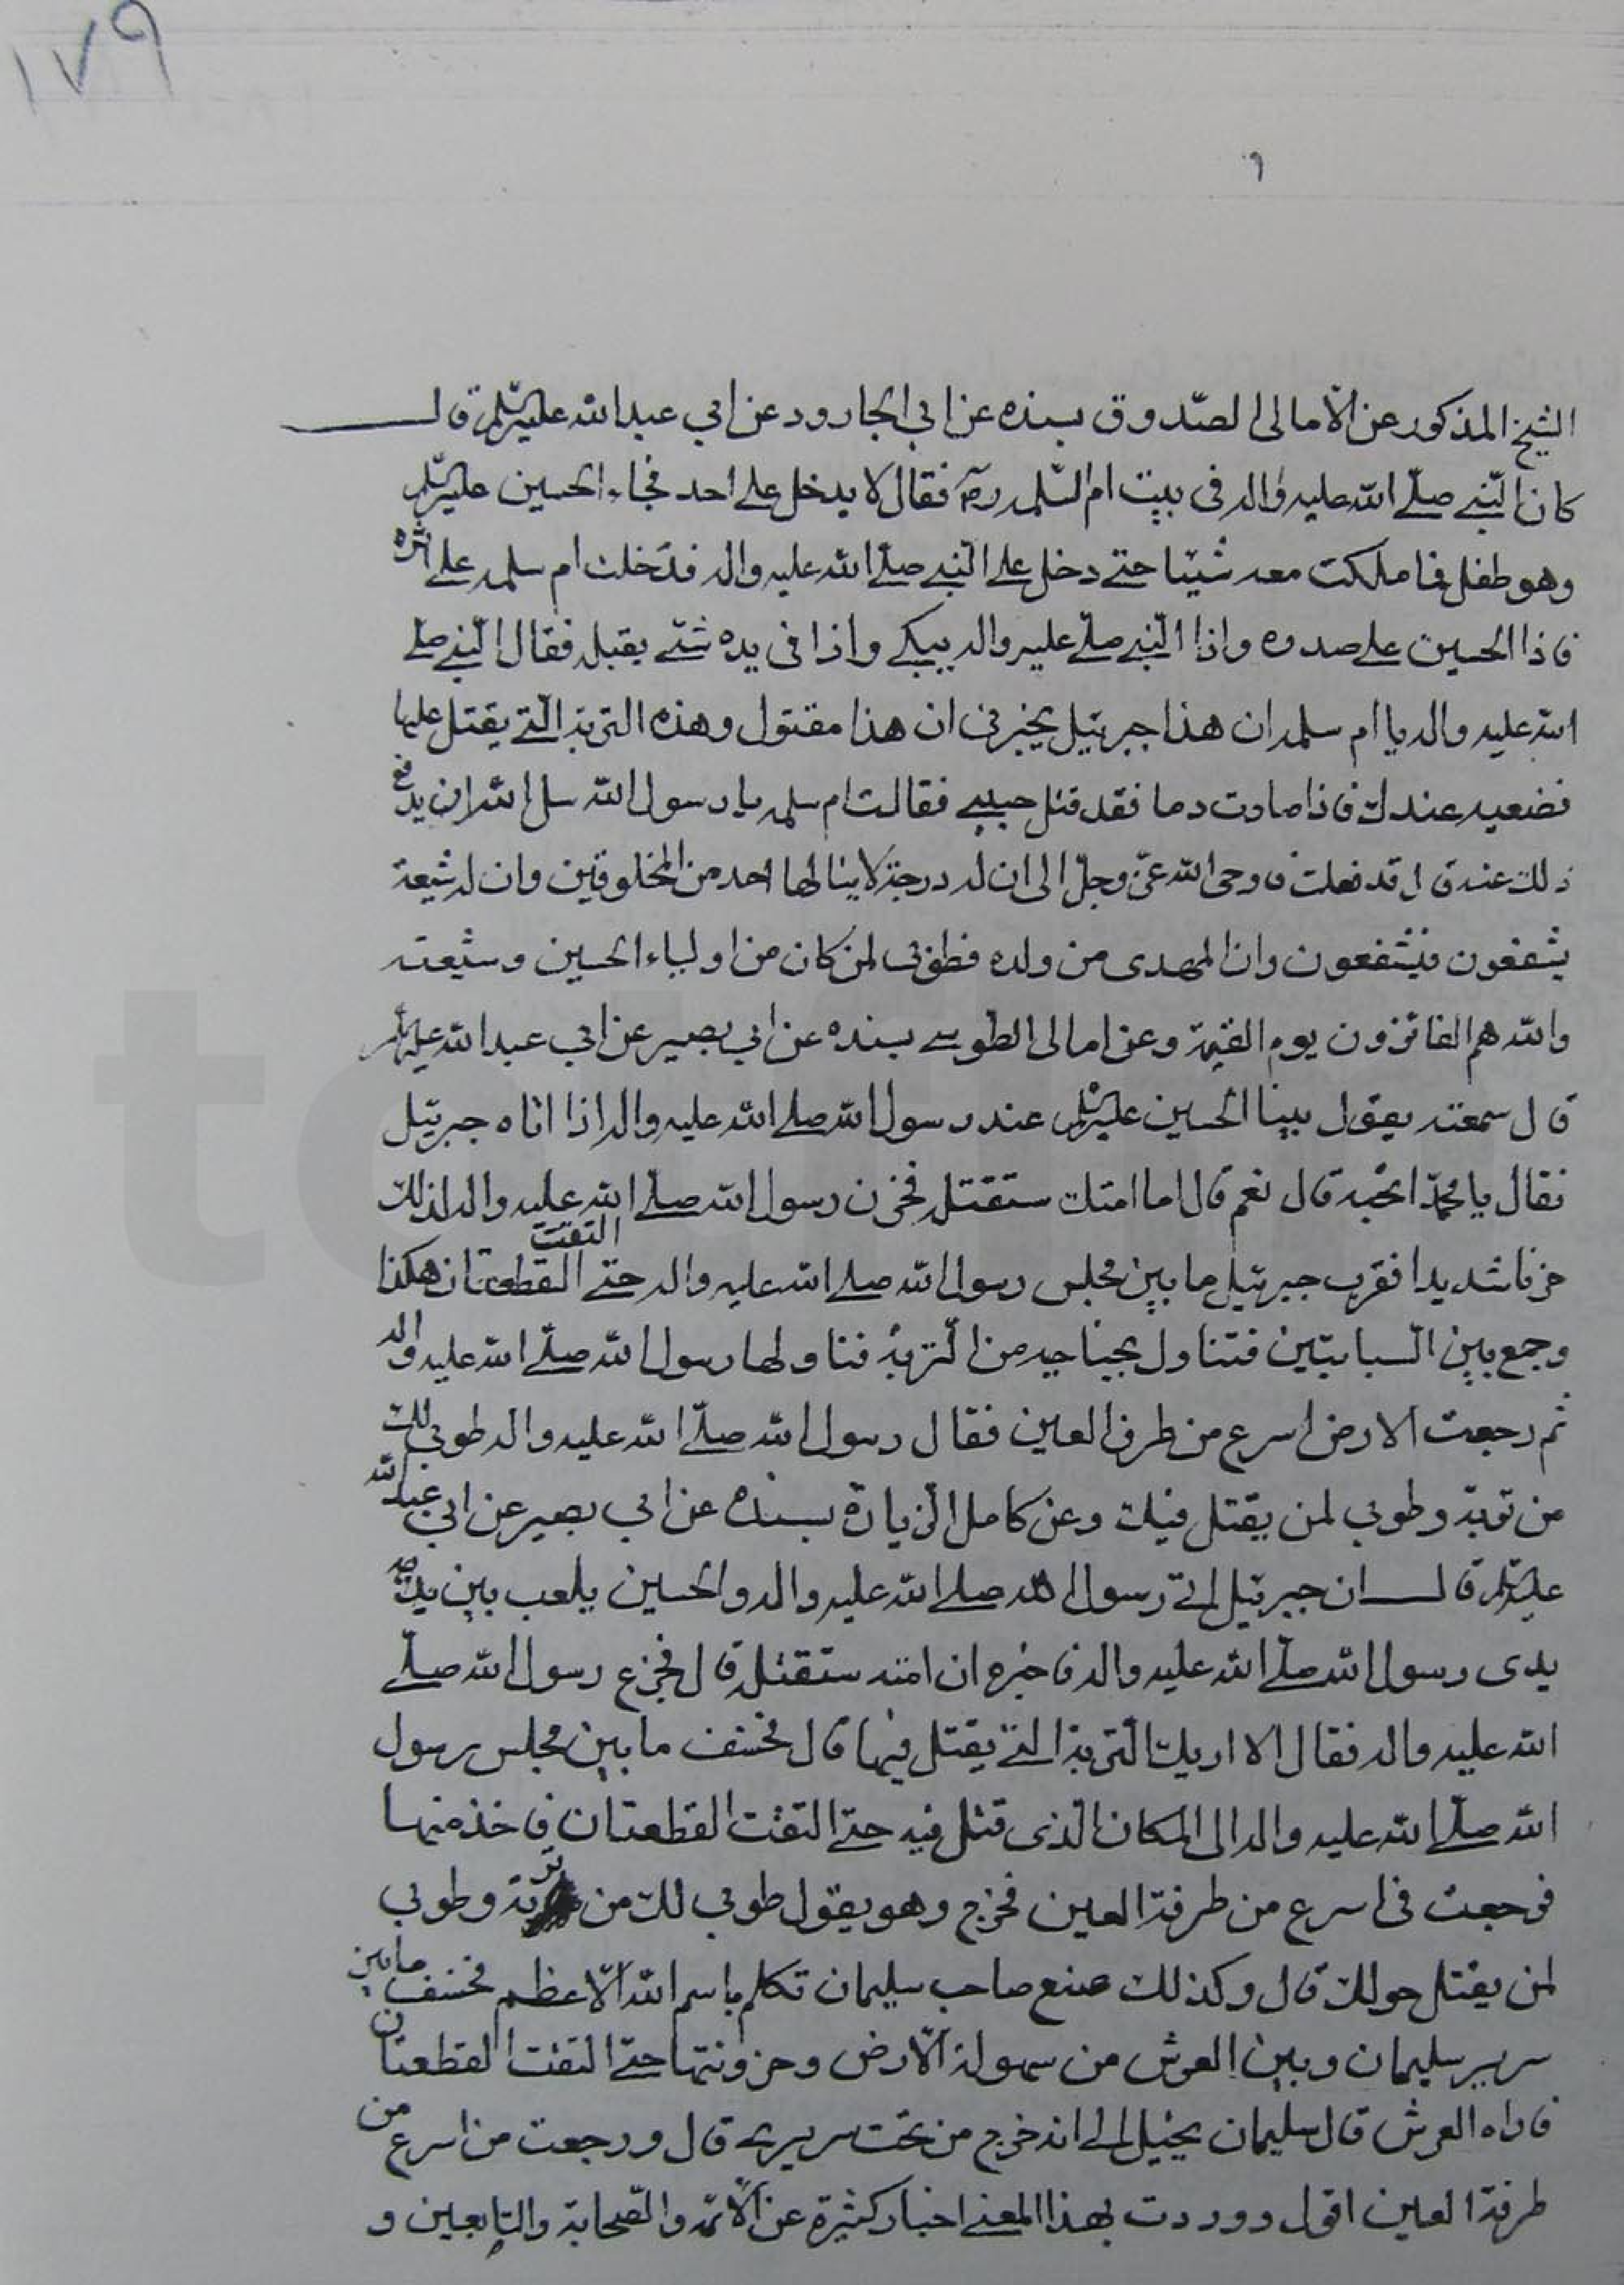 ١٧٩
الشيخ المذكور عن الأمالى الصّدوق بسنده عن ابي الجارود عن ابي عبد الله عليه السّلم قال
كان النّبي صلّى الله عليه واله فى بيت ام السّلمه رض فقال لا يدخل على احد فجاء الحسين عليه السّلم
وهو طفل فما ملكت معه شيئا حتى دخل على النبي صلّى الله عليه واله فدخلت ام سلمه على اثره
فاذا الحسين على صدره واذا النّبي صلّى عليه واله يبكي واذا فى يده شئ يقبله فقال النّبي صلى
الله عليه واله يا ام سلمه ان هذا جبرئيل يخبرنى ان هذا مقتول وهذه التربة الّتي يقتل عليها
فضعيه عندك فاذا صارت دما فقد قتل حبيبي فقالت ام سلمه يا رسول الله سل الله ان يدفع
ذلك عنه قال قد فعلت فاوحى الله عزّ وجلّ الى ان له درجة لا ينالها احد من المخلوقين وان له شيعة
يشفعون فيشفعون وان المهدى من ولده فطوبى لمن كان من اولياء الحسين وشيعته
والله هم الفائزون يوم القيمة وعن امالى الطوسي بسنده عن ابي بصير عن ابي عبد الله عليه السّلم
قال سمعته يقول بينا الحسين عليه السّلم عند رسول الله صلى الله عليه واله اذا اتاه جبرئيل
فقال يا محمّد اتحبّه قال نعم قال اما امتك ستقتله فحزن رسول الله صلّى الله عليه واله لذلك
حزنا شديدا فقرب جبرئيل ما بين مجلس رسول الله صلى الله عليه واله حتى التقت القطعتان هكذا
وجمع بين السبابتين فتناول بجناحيه من التربة فناولها رسول الله صلّى الله عليه واله
ثم رجعت الارض اسرع من طرف العين فقال رسول الله صلّى الله عليه واله طوبى لك
من تربة وطوبى لمن يقتل فيك وعن كامل الزيارة بسنده عن ابي بصير عن ابي عبد الله
عليه السّلم قال ان جبرئيل اتى رسول الله صلى الله عليه واله والحسين يلعب بين يديه
يدى رسول الله صلّى الله عليه واله فاخبره ان امته ستقتله قال فجزع رسول الله صلّى
الله عليه واله فقال الا اريك التربة التي يقتل فيها قال فخسف ما بين مجلس رسول
الله صلّى الله عليه واله الى المكان الّذى قتل فيه حتى التقت القطعتان فاخذ منها
فرجعت فى اسرع من طرفة العين فخرج وهو يقول طوبى لك من تربة وطوبى
لمن يقتل حولك قال وكذلك صنع صاحب سليمان تكلم باسم الله الاعظم فخسف ما بين
سرير سليمان وبين العرش من سهولة الارض وحزونتها حتى التقت القطعتان
فاراه العرش قال سليمان يخيل الى انه خرج من تحت سريرى قال ورجعت من اسرع من
طرفة العين اقول ووردت بهذا المعنى اخبار كثيرة عن الأئمّة والصّحابة والتابعين و